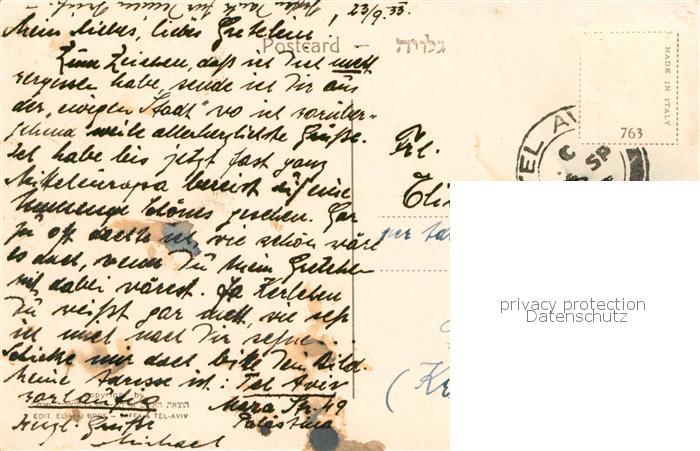 , 23/9.33.
Mein liebes, liebes Gretelein!
Postcard – גלויה
Zum Zeichen, daß ich Dich nicht
vergessen habe, sende ich Dir aus
der „ewigen Stadt" wo ich vorüber-
gehend weile allerherzlichste Grüße.
Ich habe bis jetzt fast ganz
Mitteleuropa bereist & eine
Unmenge schönes gesehen. Gar
zu oft dachte ich, wie schön wäre
es doch, wenn Du mein Gretchen
mit dabei wärest. Ja
Du weißt gar nicht, wie sehr
ich mich nach Dir sehne.
Schicke mir doch bitte Dein Bild.
Meine Adresse ist: Tel Aviv
Copyright by
Str. 49
EDIT. ELIAHU BROS – JAFFA & TEL-AVIV
Palästina
Herzl. Grüße
Michael
MADE IN ITALY
763
TEL AV
SP
Frl.
privacy protection
Datenschutz